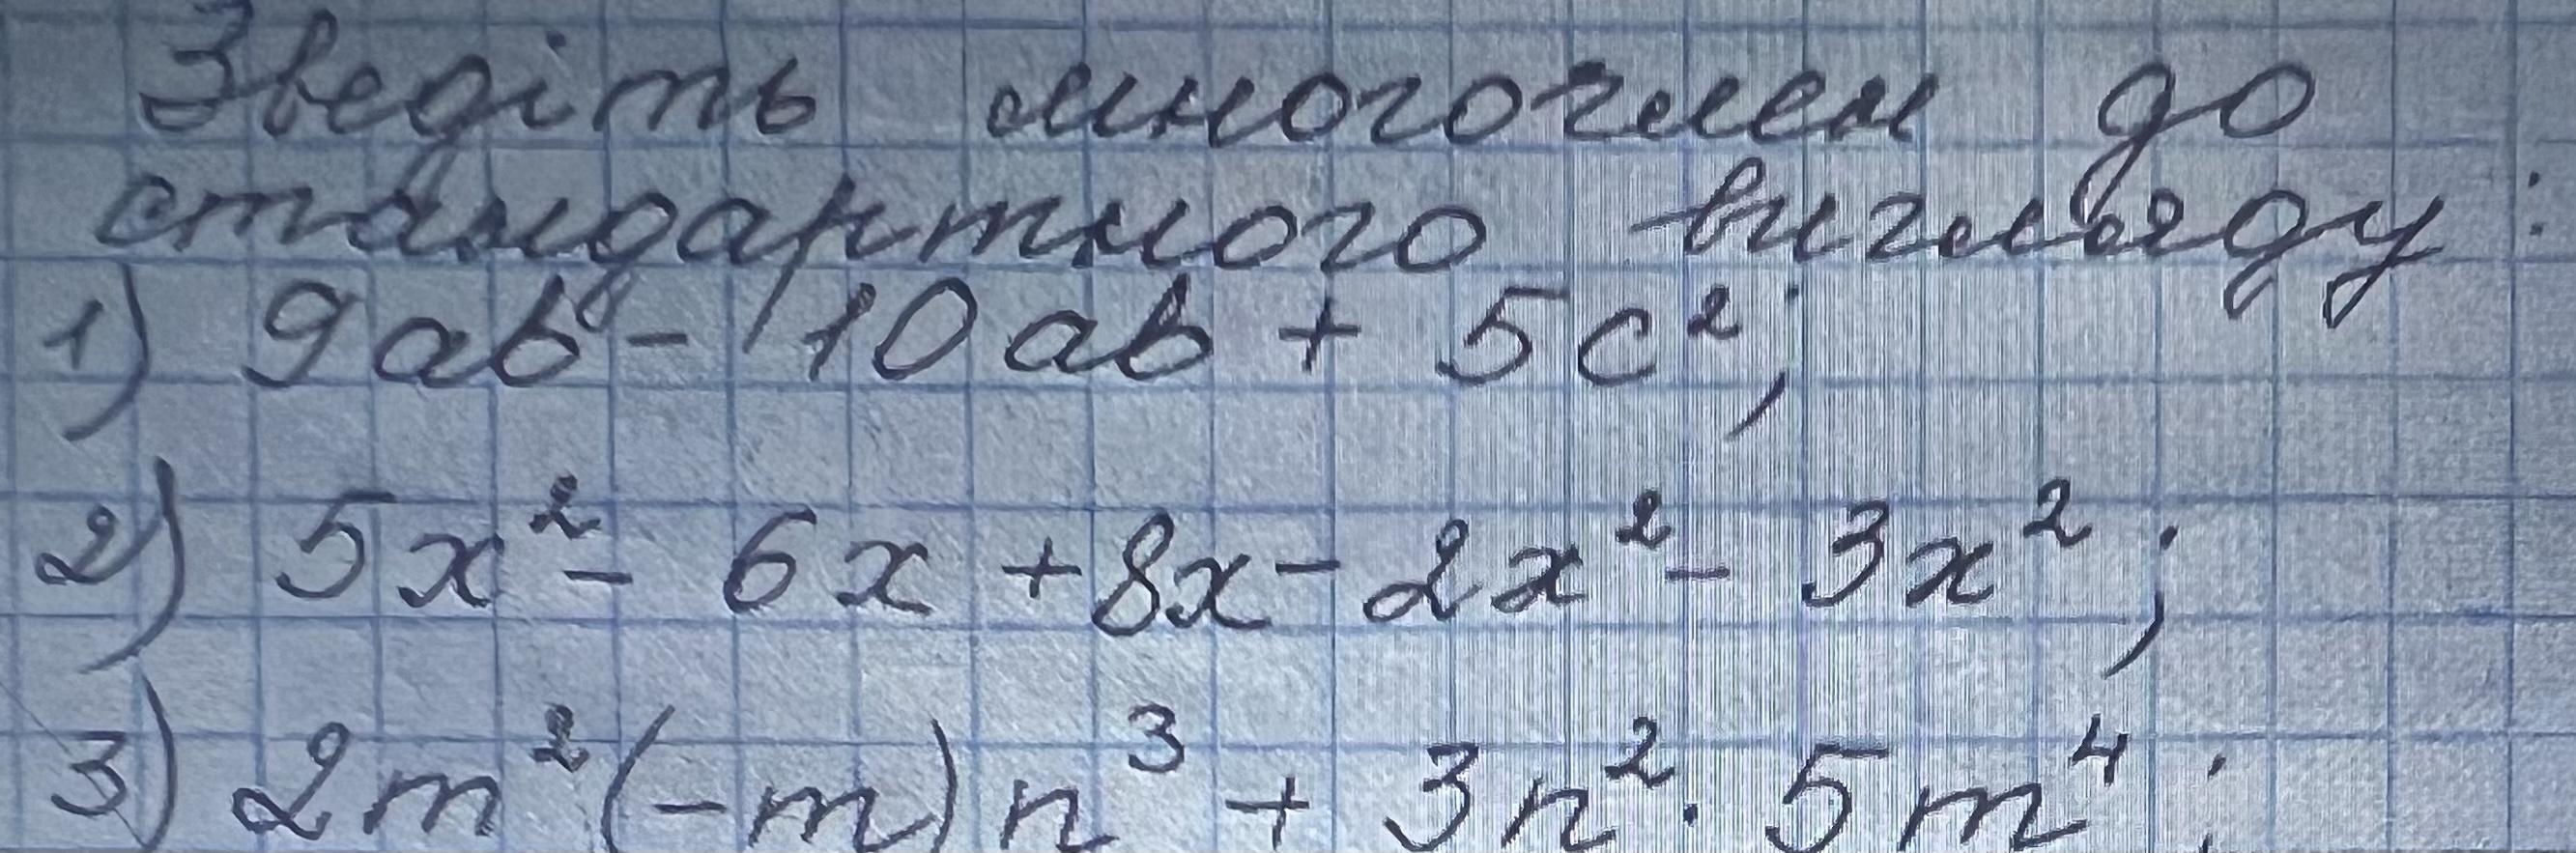 Зведіть многочлен до
стандартного вигляду:
1) 9ab - 10ab + 5c²;
2) 5x² - 6x + 8x - 2x² - 3x²;
3) 2m²(-m)n³ + 3n² · 5m⁴;